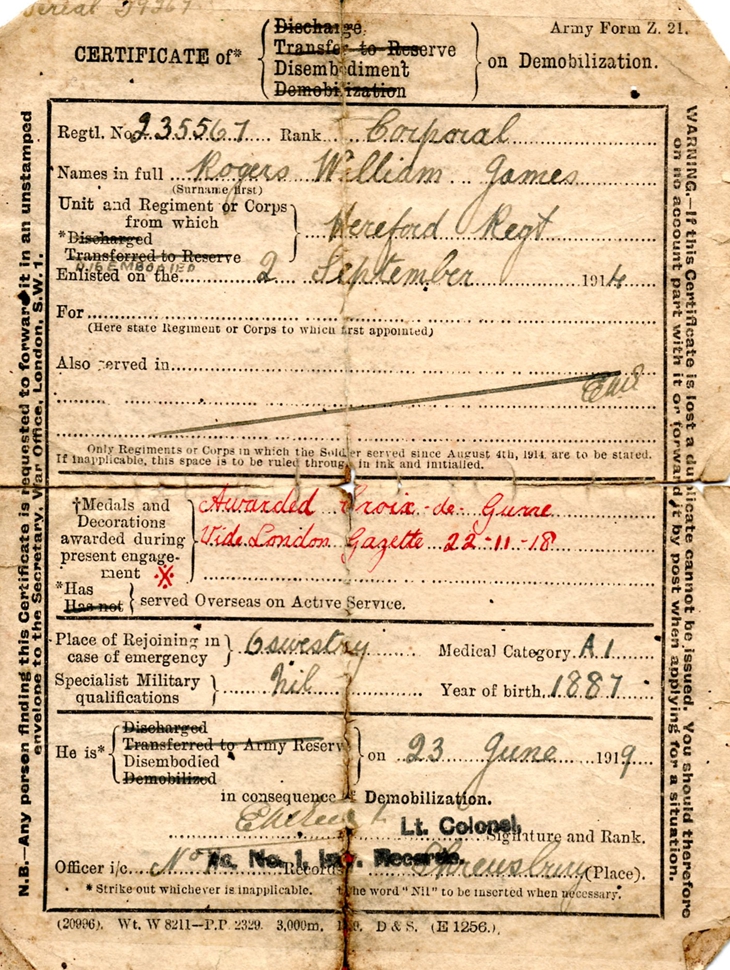 Serial
Army Form Z. 21.
CERTIFICATE of*
Discharge
Transfer to Reserve
Disembodiment
Demobilization
on Demobilization.
Regtl. No. 235567 Rank Corporal
Names in full Rogers William James
(Surname first)
Unit and Regiment or Corps
from which
*Discharged
Transferred to Reserve
Hereford Regt
DISEMBODIED
Enlisted on the 2 September 1914
For
(Here state Regiment or Corps to which first appointed)
Also served in
Only Regiments or Corps in which the Soldier served since August 4th, 1914, are to be stated.
If inapplicable, this space is to be ruled through in ink and initialled.
†Medals and
Decorations
awarded during
present engage-
ment
Awarded Croix-de-Gurre
Vide London Gazette 22-11-18
*Has
Has not
served Overseas on Active Service.
Place of Rejoining in
case of emergency
Oswestry
Medical Category A1
Specialist Military
qualifications
Nil
Year of birth 1887
He is*
Discharged
Transferred to Army Reserve
Disembodied
Demobilized
on 23 June 1919
in consequence of Demobilization.
Lt. Colonel,
Signature and Rank.
Officer i/c. No Records Shrewsbury (Place).
No. 1. Records.
*Strike out whichever is inapplicable. The word "Nil" to be inserted when necessary.
(20996). Wt. W 8211—P.P. 2329. 3,000m. D & S. (E 1256.)
N.B.—Any person finding this Certificate is requested to forward it in an unstamped
envelope to the Secretary, War Office, London, S.W. 1.
WARNING.—If this Certificate is lost a duplicate cannot be issued. You should therefore
on no account part with it or forward it by post when applying for a situation.